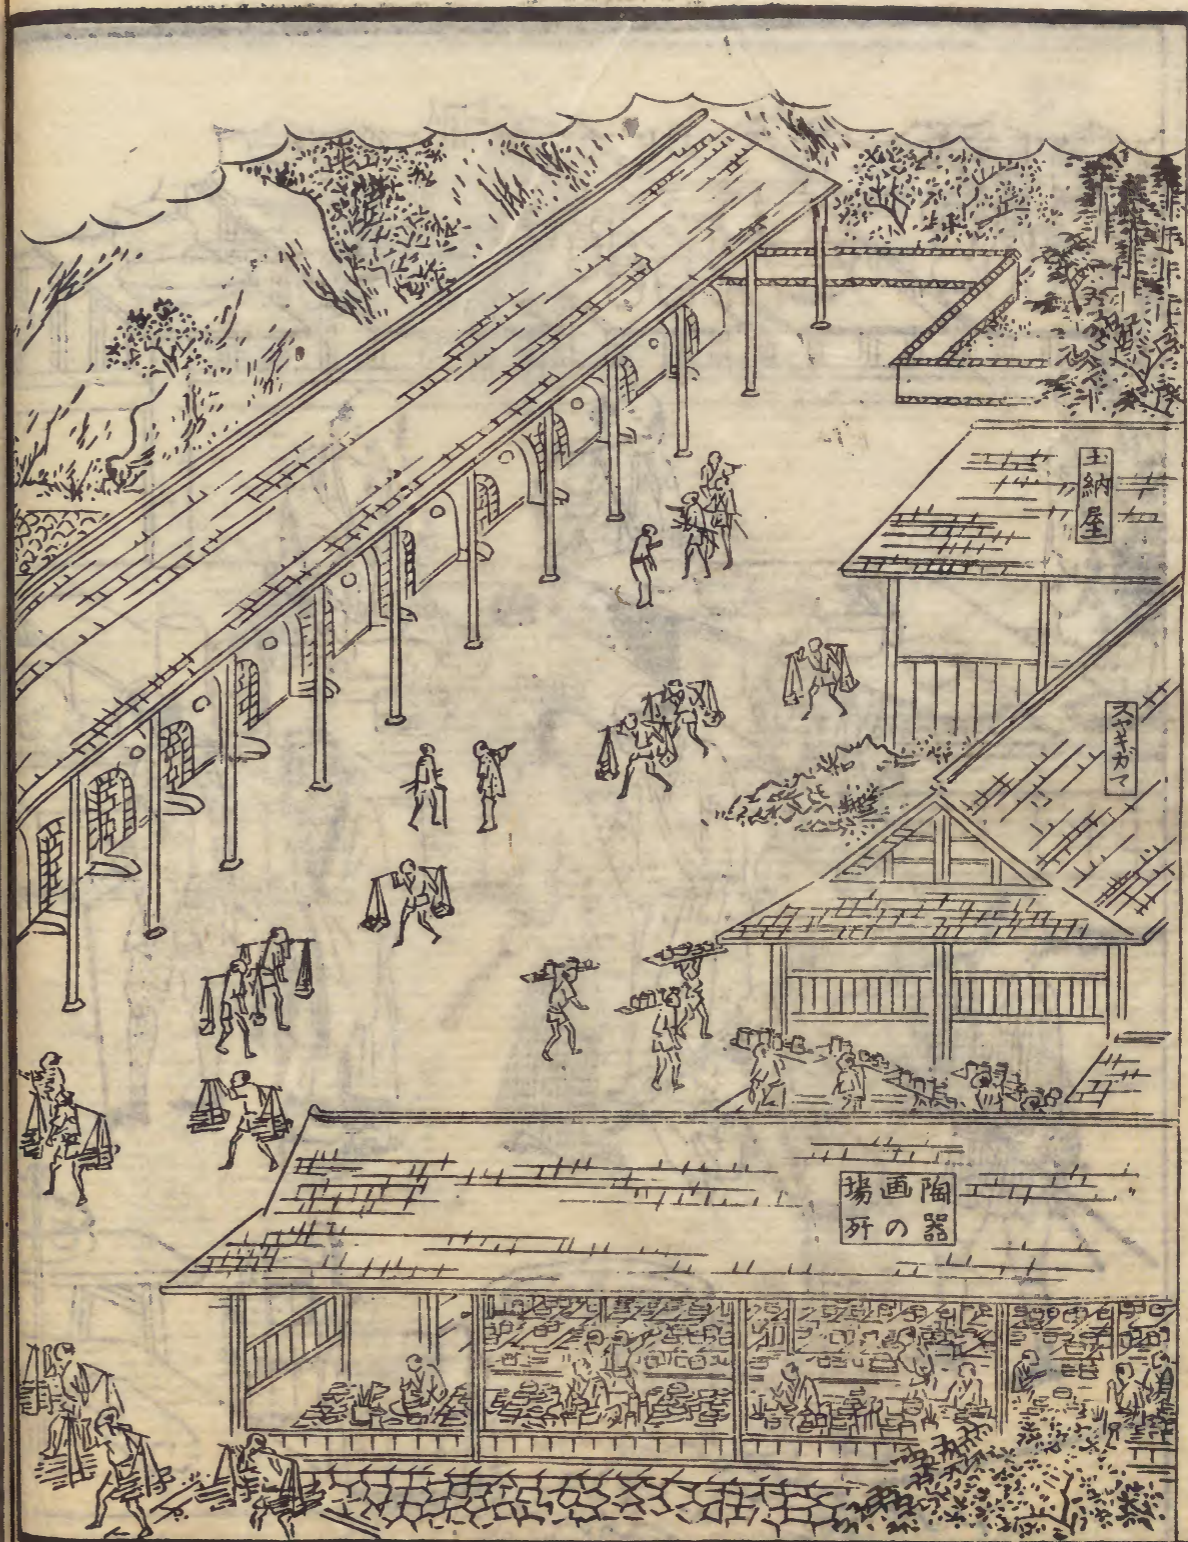 土納屋
スヤキガマ
陶器
画の
場所